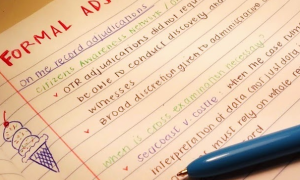 FORMAL ADJ
on the record adjudications
Citizens Awareness Network (
• OTR adjudications did not requ
be able to conduct discovery and
witnesses
Broad discretion given to administra
When is cross examination necessary?
• seacoast v. costle: when the case turn
interpretation of data (not just data
must rely on whole